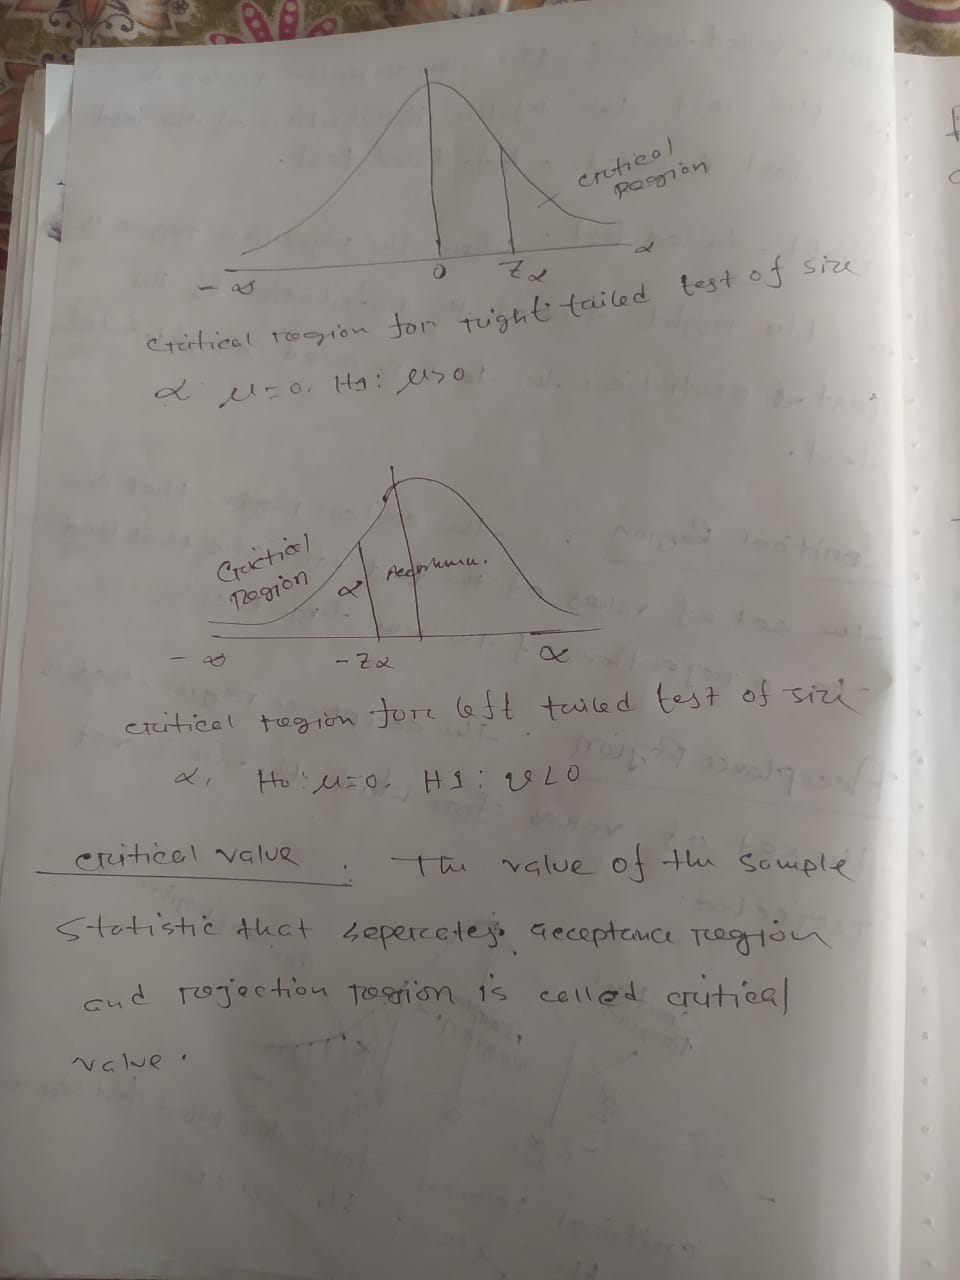 critical
region
α
- ∞
0
Zα
critical region for right tailed test of size
α μ=0. H1: μ>0
Critical
region
α
- ∞
-Zα
α
critical region for left tailed test of size
α, H0: μ=0. H1: μ<0
critical value : The value of the sample
statistic that seperates acceptance region
and rejection region is called critical
value.